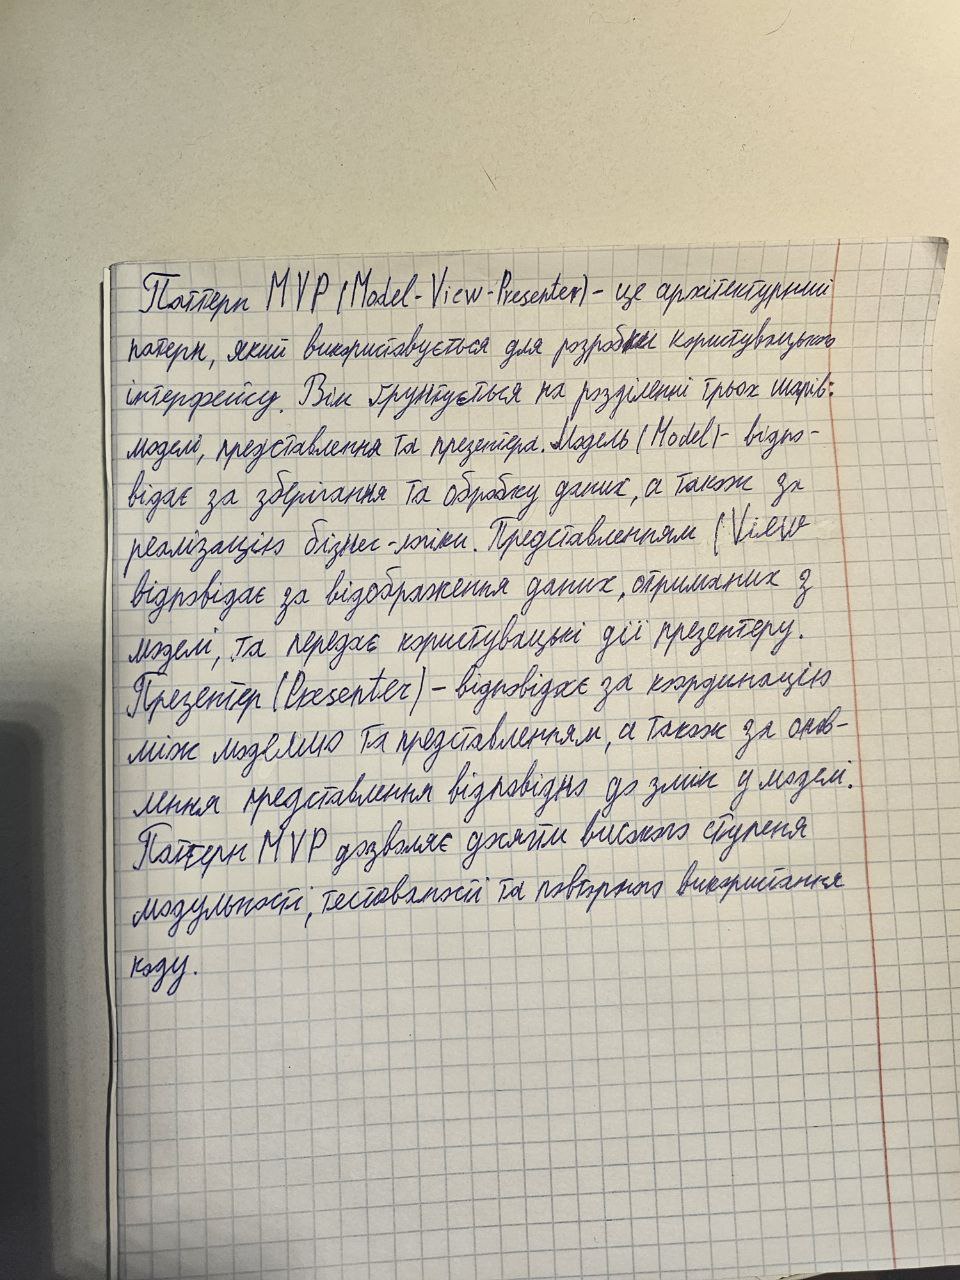 Паттерн MVP (Model-View-Presenter) - це архітектурний
патерн, який використовується для розробки користувацького
інтерфейсу. Він ґрунтується на розділенні трьох шарів:
моделі, представлення та презентера. Модель (Model) - відпо-
відає за зберігання та обробку даних, а також за
реалізацію бізнес-логіки. Представленням (View
відповідає за відображення даних, отриманих з
моделі, та передає користувацькі дії презентеру.
Презентер (Presenter) - відповідає за координацію
між моделлю та представленням, а також за онов-
лення представлення відповідно до змін у моделі.
Паттерн MVP дозволяє досягти високого ступеня
модульності, тестованості та повторного використання
коду.